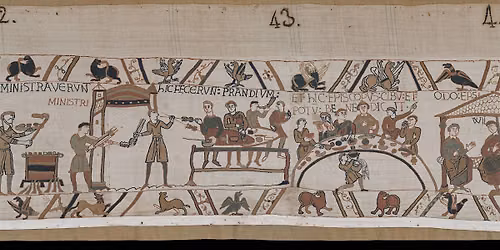 2.
43.
4
MINISTRAVERVN
MINISTRI
hIC FECERVN: PRANDIVM:
ET hIC EPISCOPVS: CIBV: ET:
POTV: BENEDICIT:
ODO: EPS: